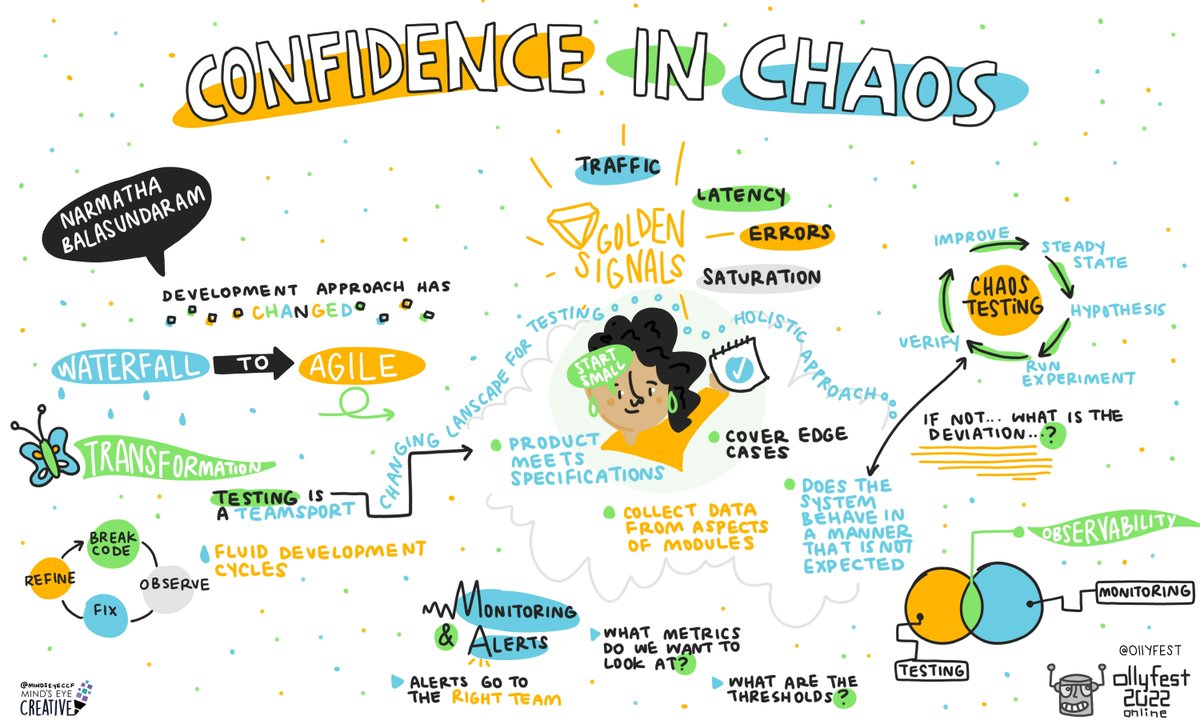 CONFIDENCE IN CHAOS
NARMATHA
BALASUNDARAM
DEVELOPMENT APPROACH HAS
CHANGED
WATERFALL TO AGILE
TRANSFORMATION
TESTING IS
A TEAMSPORT
FLUID DEVELOPMENT
CYCLES
BREAK
CODE
OBSERVE
FIX
REFINE
TRAFFIC
LATENCY
ERRORS
SATURATION
GOLDEN
SIGNALS
CHANGING LANSCAPE FOR TESTING
HOLISTIC APPROACH
START
SMALL
PRODUCT
MEETS
SPECIFICATIONS
COVER EDGE
CASES
COLLECT DATA
FROM ASPECTS
OF MODULES
DOES THE
SYSTEM
BEHAVE IN
A MANNER
THAT IS NOT
EXPECTED
CHAOS
TESTING
IMPROVE
STEADY
STATE
HYPOTHESIS
RUN
EXPERIMENT
VERIFY
IF NOT... WHAT IS THE
DEVIATION...?
OBSERVABILITY
MONITORING
TESTING
MONITORING
& ALERTS
ALERTS GO TO
THE RIGHT TEAM
WHAT METRICS
DO WE WANT TO
LOOK AT?
WHAT ARE THE
THRESHOLDS?
@MINDSEYECCF
MIND'S EYE
CREATIVE
@OLLYFEST
ollyfest
2022
online